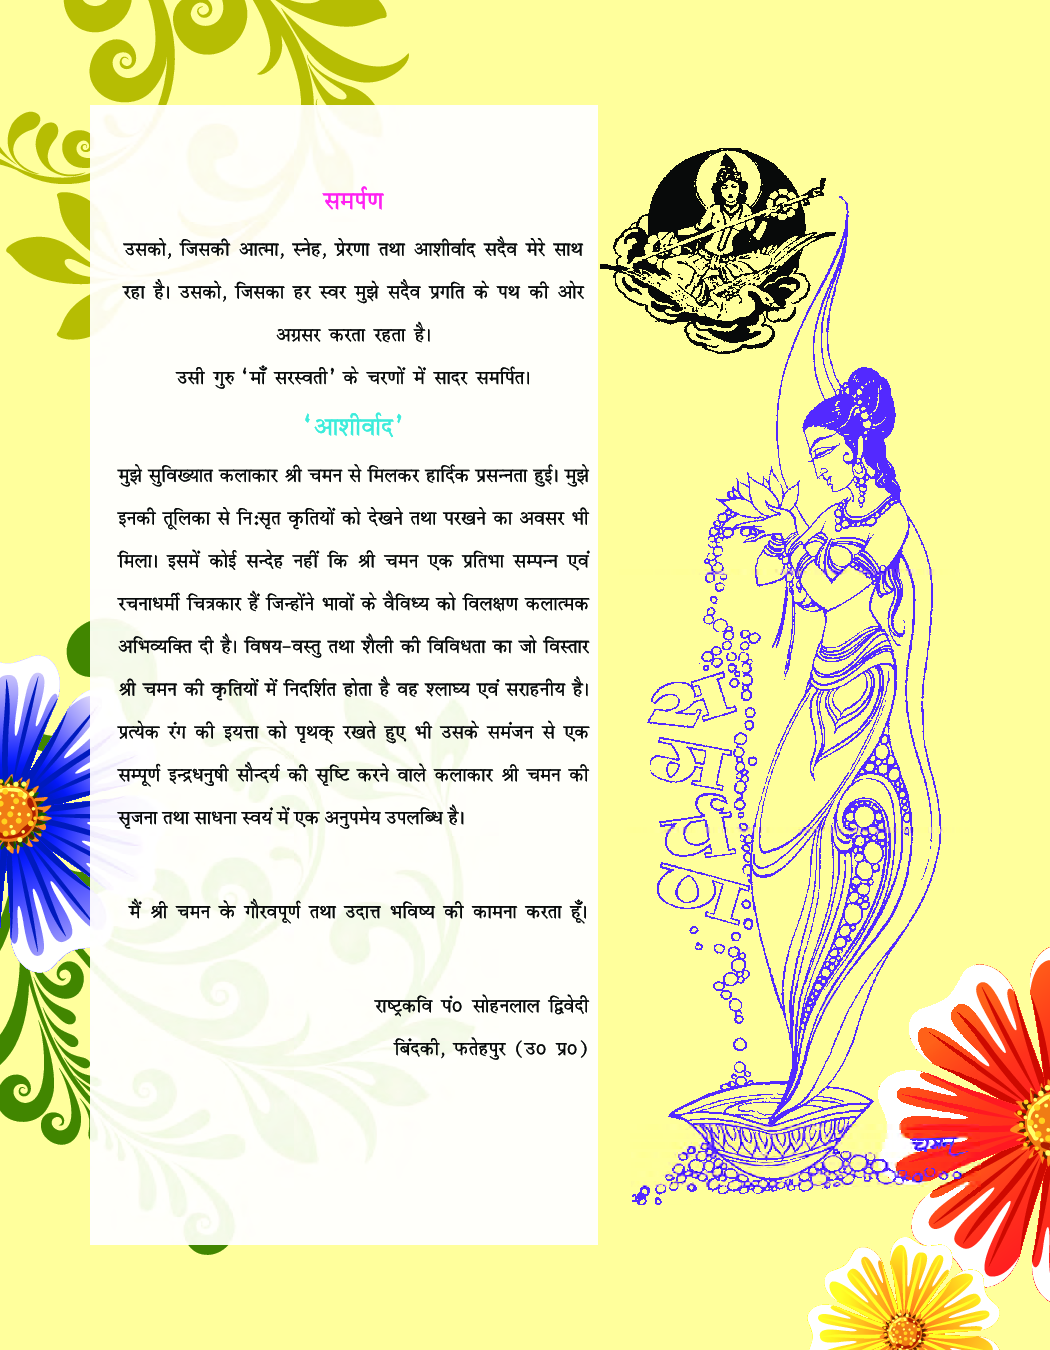 समर्पण
उसको, जिसकी आत्मा, स्नेह, प्रेरणा तथा आशीर्वाद सदैव मेरे साथ
रहा है। उसको, जिसका हर स्वर मुझे सदैव प्रगति के पथ की ओर
अग्रसर करता रहता है।
उसी गुरु ‘माँ सरस्वती’ के चरणों में सादर समर्पित।
‘आशीर्वाद’
मुझे सुविख्यात कलाकार श्री चमन से मिलकर हार्दिक प्रसन्नता हुई। मुझे
इनकी तूलिका से निःसृत कृतियों को देखने तथा परखने का अवसर भी
मिला। इसमें कोई सन्देह नहीं कि श्री चमन एक प्रतिभा सम्पन्न एवं
रचनाधर्मी चित्रकार हैं जिन्होंने भावों के वैविध्य को विलक्षण कलात्मक
अभिव्यक्ति दी है। विषय-वस्तु तथा शैली की विविधता का जो विस्तार
श्री चमन की कृतियों में निदर्शित होता है वह श्लाघ्य एवं सराहनीय है।
प्रत्येक रंग की इयत्ता को पृथक् रखते हुए भी उसके समंजन से एक
सम्पूर्ण इन्द्रधनुषी सौन्दर्य की सृष्टि करने वाले कलाकार श्री चमन की
सृजना तथा साधना स्वयं में एक अनुपमेय उपलब्धि है।
मैं श्री चमन के गौरवपूर्ण तथा उदात्त भविष्य की कामना करता हूँ।
राष्ट्रकवि पं० सोहनलाल द्विवेदी
बिंदकी, फतेहपुर (उ० प्र०)
स
म
र्प
ण
चमन
२०००